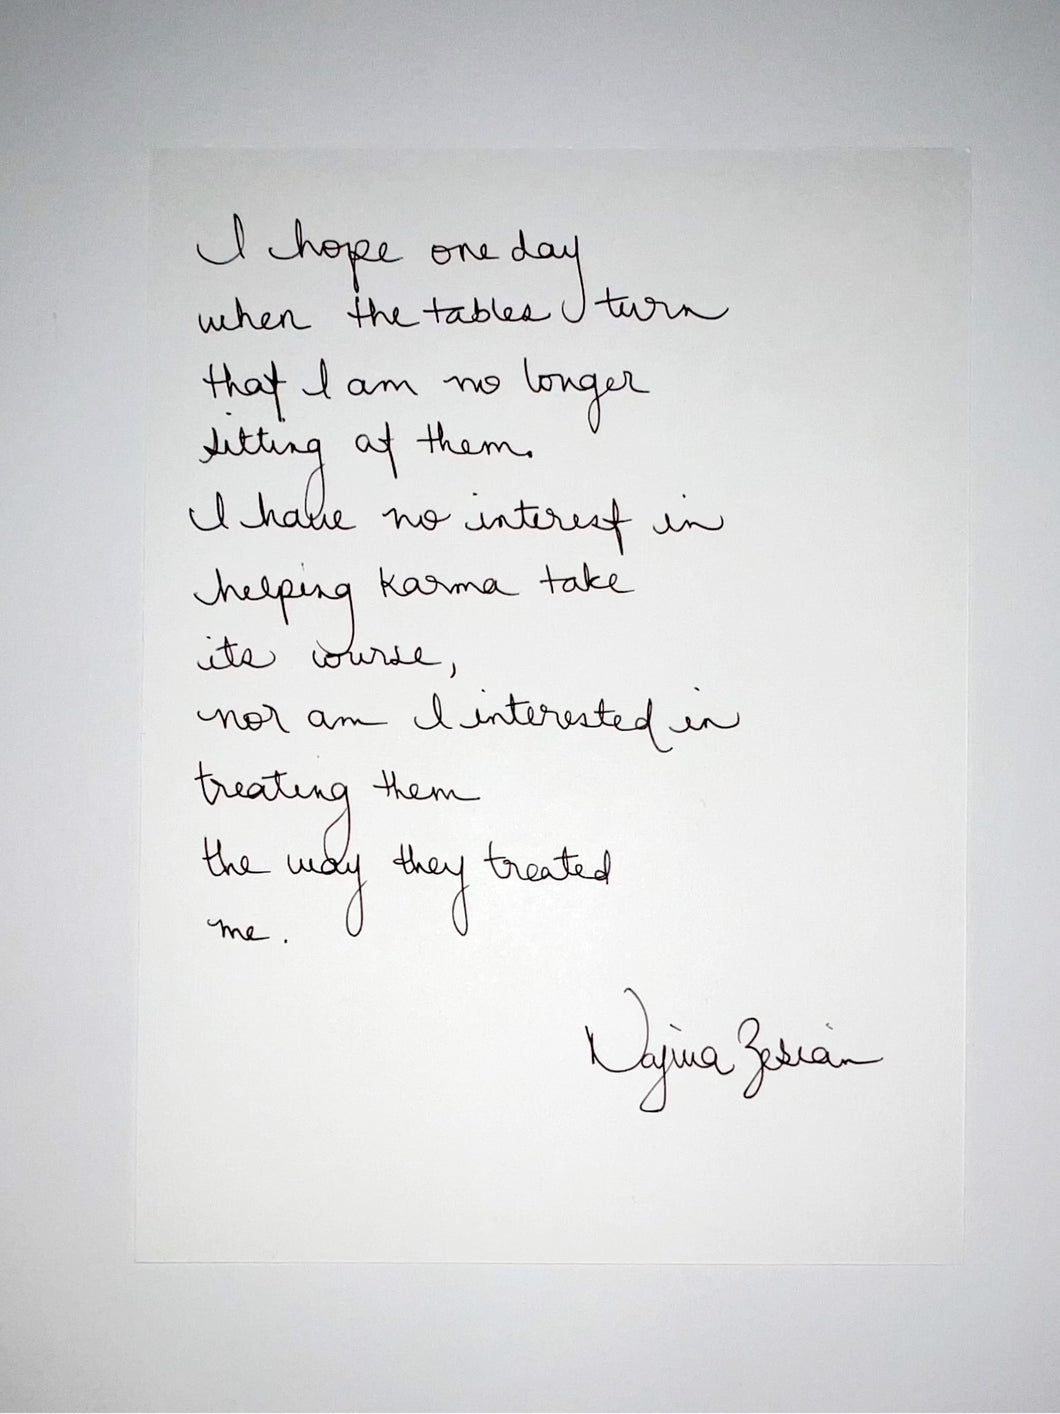 I hope one day
when the tables turn
that I am no longer
sitting at them.
I have no interest in
helping karma take
its course,
nor am I interested in
treating them
the way they treated
me.
Najwa Zebian